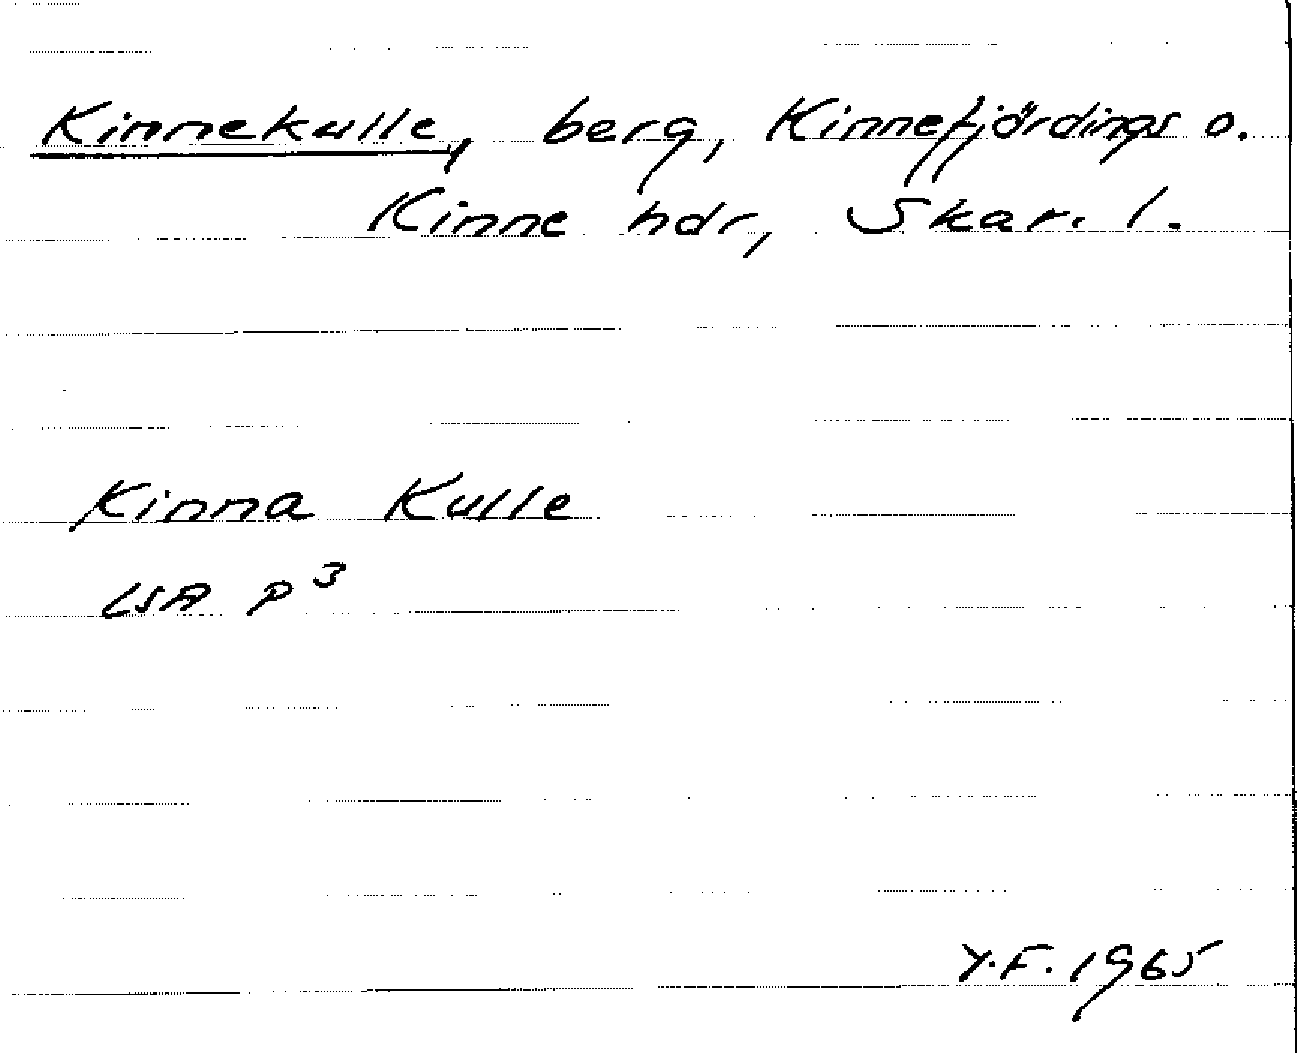 Kinnekulle, berg, Kinnefjördings o.
Kinne hdr, Skar. l.
Kinna Kulle
LSA P³
Y.F. 1965